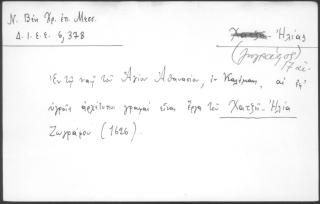 Ν. Βέη Χρ. ἐπ. Μεσσ.
Δ. Ι. Ε. Ε. 6, 378
Χατζῆ - Ἠλίας
(ζωγράφος)
17 αἰ.
Ἐν τῷ ναῷ τοῦ Ἁγίου Ἀθανασίου, ἐν Καλάμαις, αἱ ἐφ'
ὑγροῖς ἀρχαίεται γραφαί εἶναι ἔργα τοῦ Χατζῆ - Ἠλία
Ζωγράφου (1626).